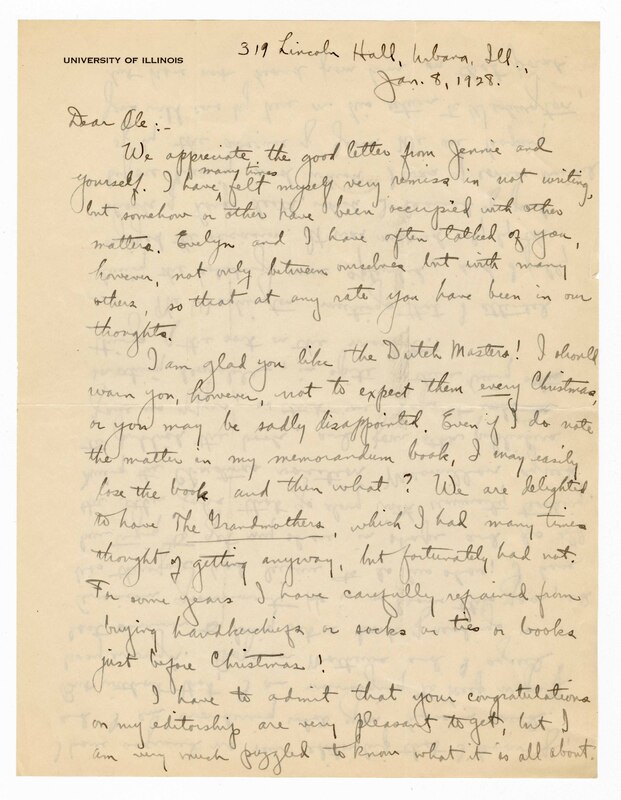 UNIVERSITY OF ILLINOIS
319 Lincoln Hall, Urbana, Ill.,
Jan. 8, 1928.
Dear Ole:-
We appreciate the good letter from Jennie and
yourself. I have many times felt myself very remiss in not writing,
but somehow or other have been occupied with other
matters. Evelyn and I have often talked of you,
however, not only between ourselves but with many
others, so that at any rate you have been in our
thoughts.
I am glad you like the Dutch Masters! I should
warn you, however, not to expect them every Christmas,
or you may be sadly disappointed. Even if I do note
the matter in my memorandum book, I may easily
lose the book and then what? We are delighted
to have The Grandmothers, which I had many times
thought of getting anyway, but fortunately had not.
For some years I have carefully refrained from
buying handkerchiefs or socks or ties or books
just before Christmas!
I have to admit that your congratulations
on my editorship are very pleasant to get, but I
am very much puzzled to know what it is all about.